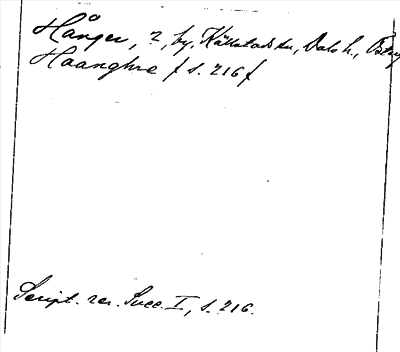 Hånger, ?, by, Källstads sn, Dals h., Östg
Haanghre f s. 216 f
Script. rer. Svec. I, s. 216.